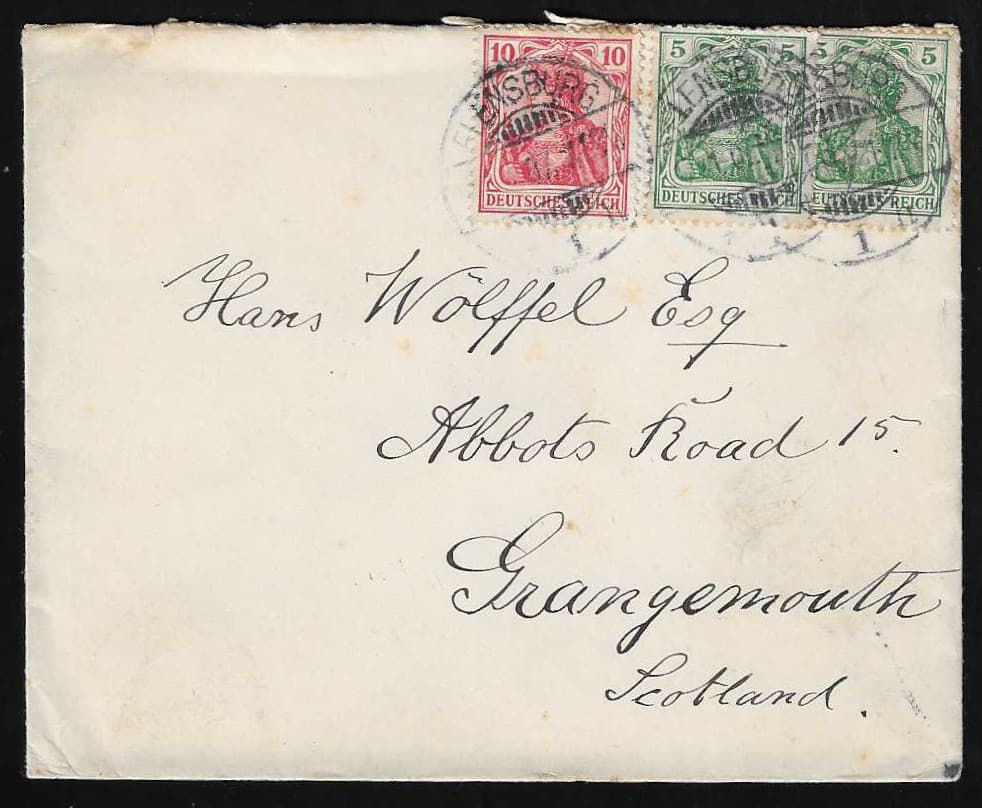 10 10
DEUTSCHES REICH
5 5
DEUTSCHES REICH
5 5
EUTSCHES REICH
FLENSBURG
1
FLENSBURG
1
FLENSBURG
1
Hans Wölffel Esq
Abbots Road 15.
Grangemouth
Scotland.